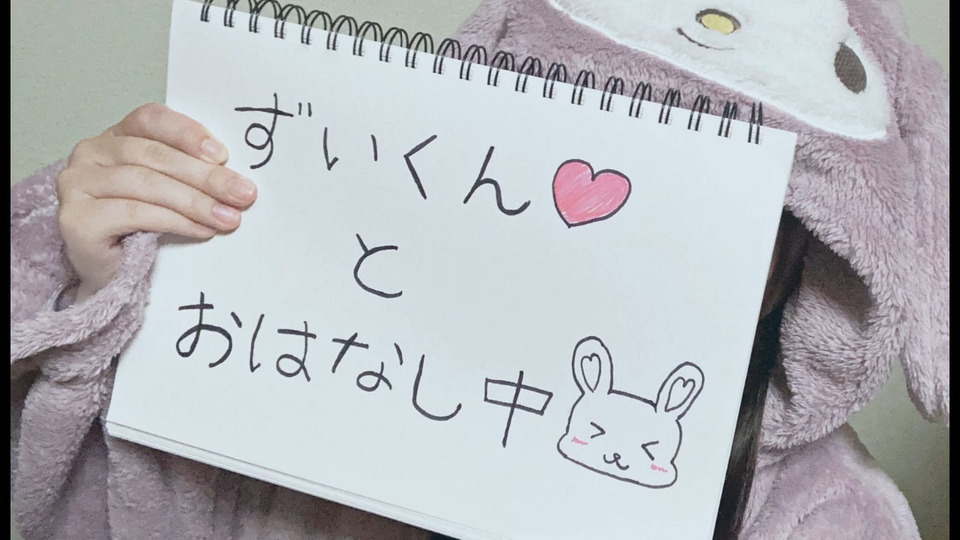 ずいくん
と
おはなし中